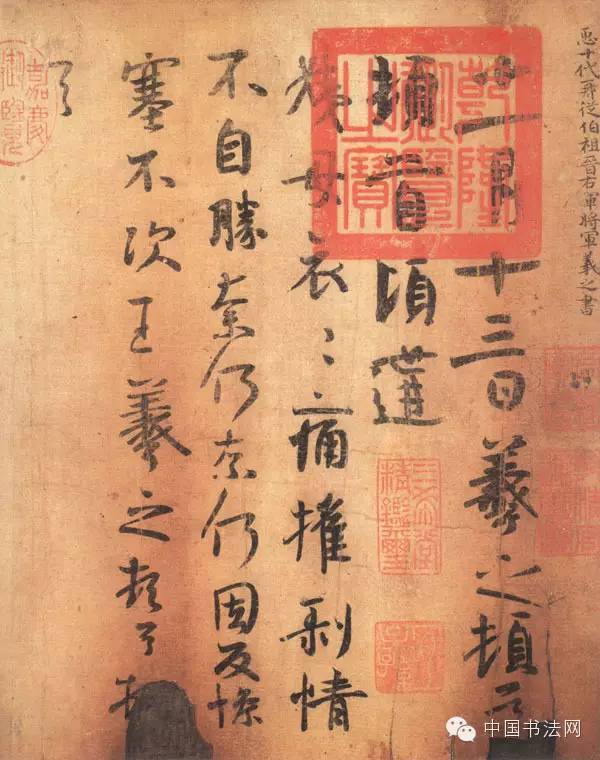 臣十代再從伯祖晉右軍將軍羲之書
十一月十三日羲之頓首
頓首頃遘
姨母哀哀痛摧剝情
不自勝奈何奈何因反慘
塞不次王羲之頓首頓
首
乾隆御覽之寶
三希堂精鑑璽
宜子孫
中国书法网